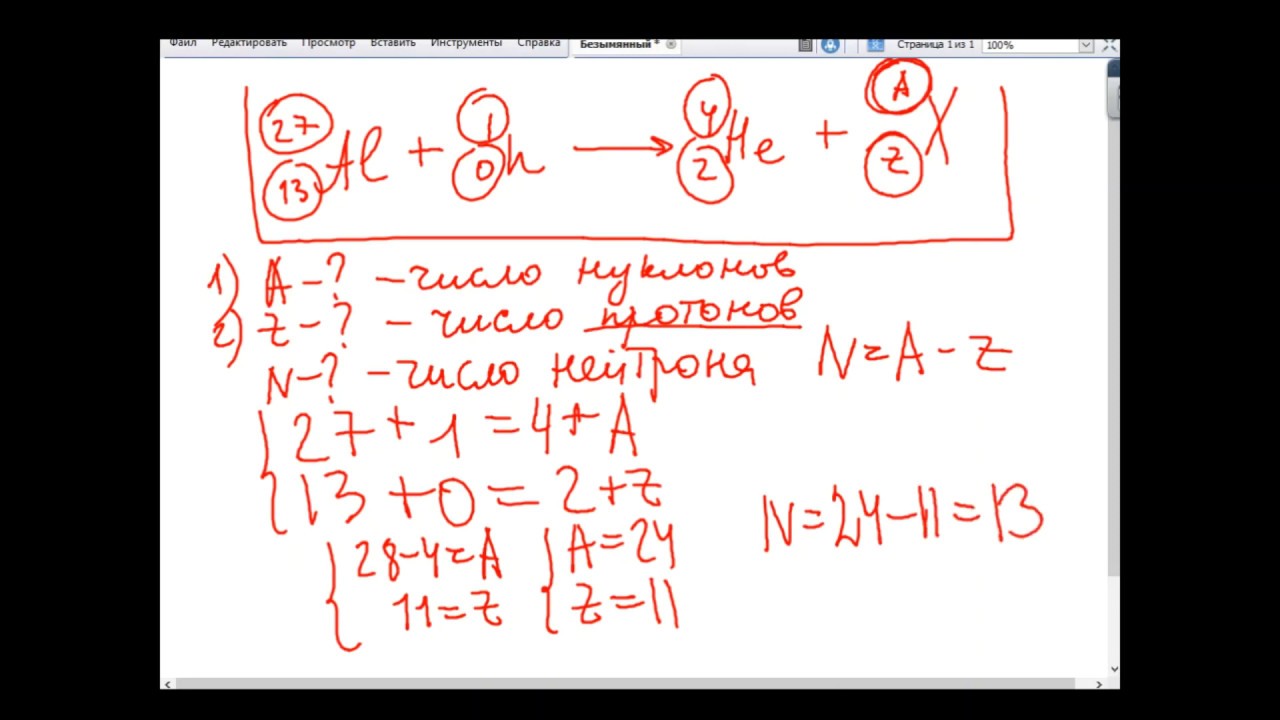 Файл Редактировать Просмотр Вставить Инструменты Справка Безымянный * Страница 1 из 1 100%
27 13 Al + 1 0 n → 4 2 He + A Z X
1) A - ? - число нуклонов
2) Z - ? - число протонов
N - ? - число нейтрона N = A - Z
27 + 1 = 4 + A
13 + 0 = 2 + Z
N = 24 - 11 = 13
28 - 4 = A A = 24
11 = Z Z = 11